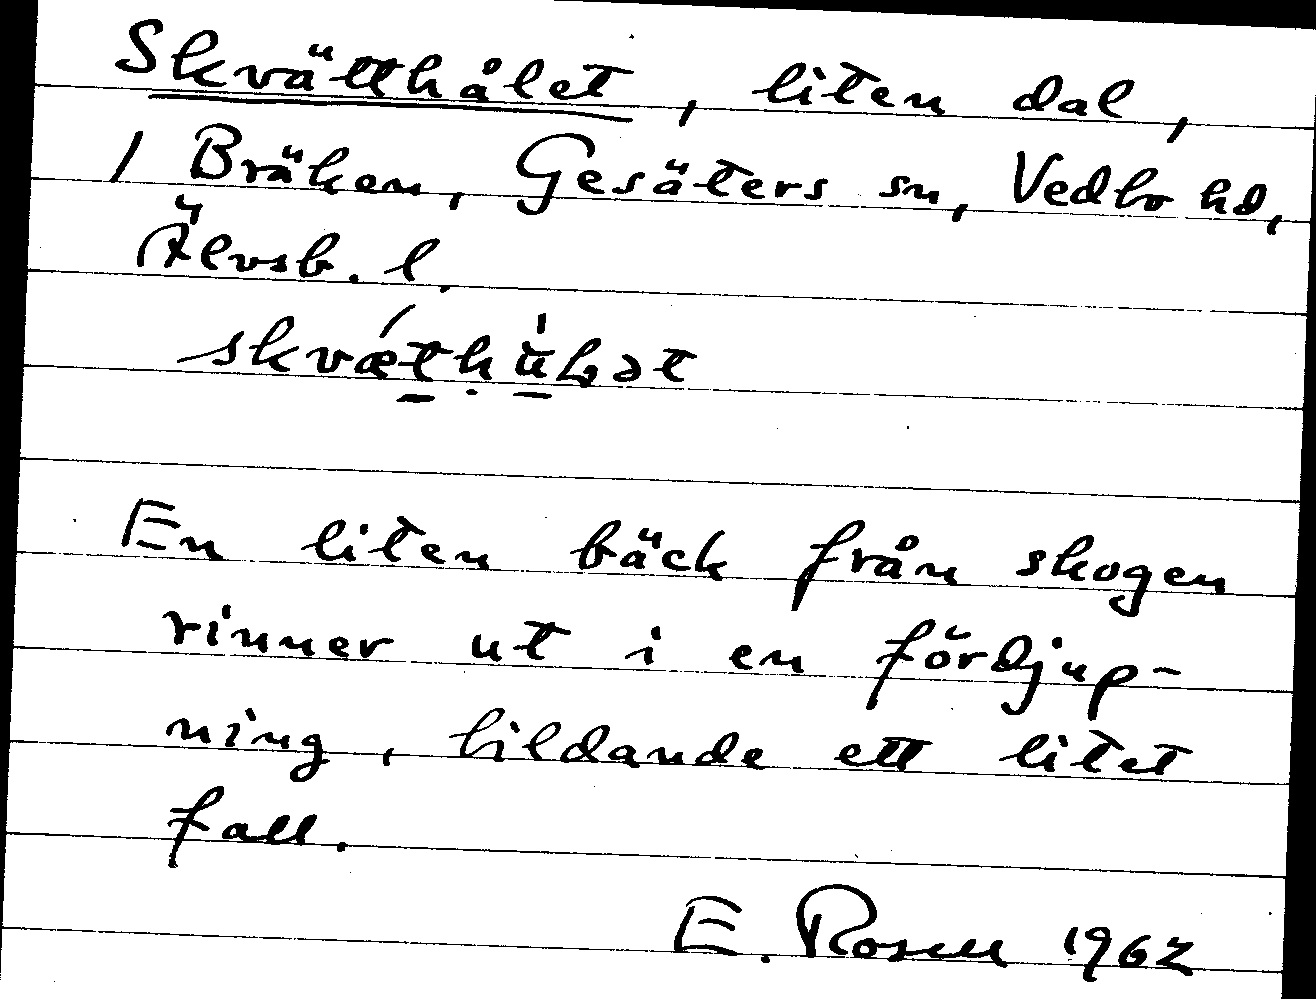 Skvätthålet, liten dal,
/ Bräken, Gesäters sn, Vedbo hd,
Älvsb. l.
En liten bäck från skogen
rinner ut i en fördjup-
ning, bildande ett litet
fall.
E. Rosell 1962